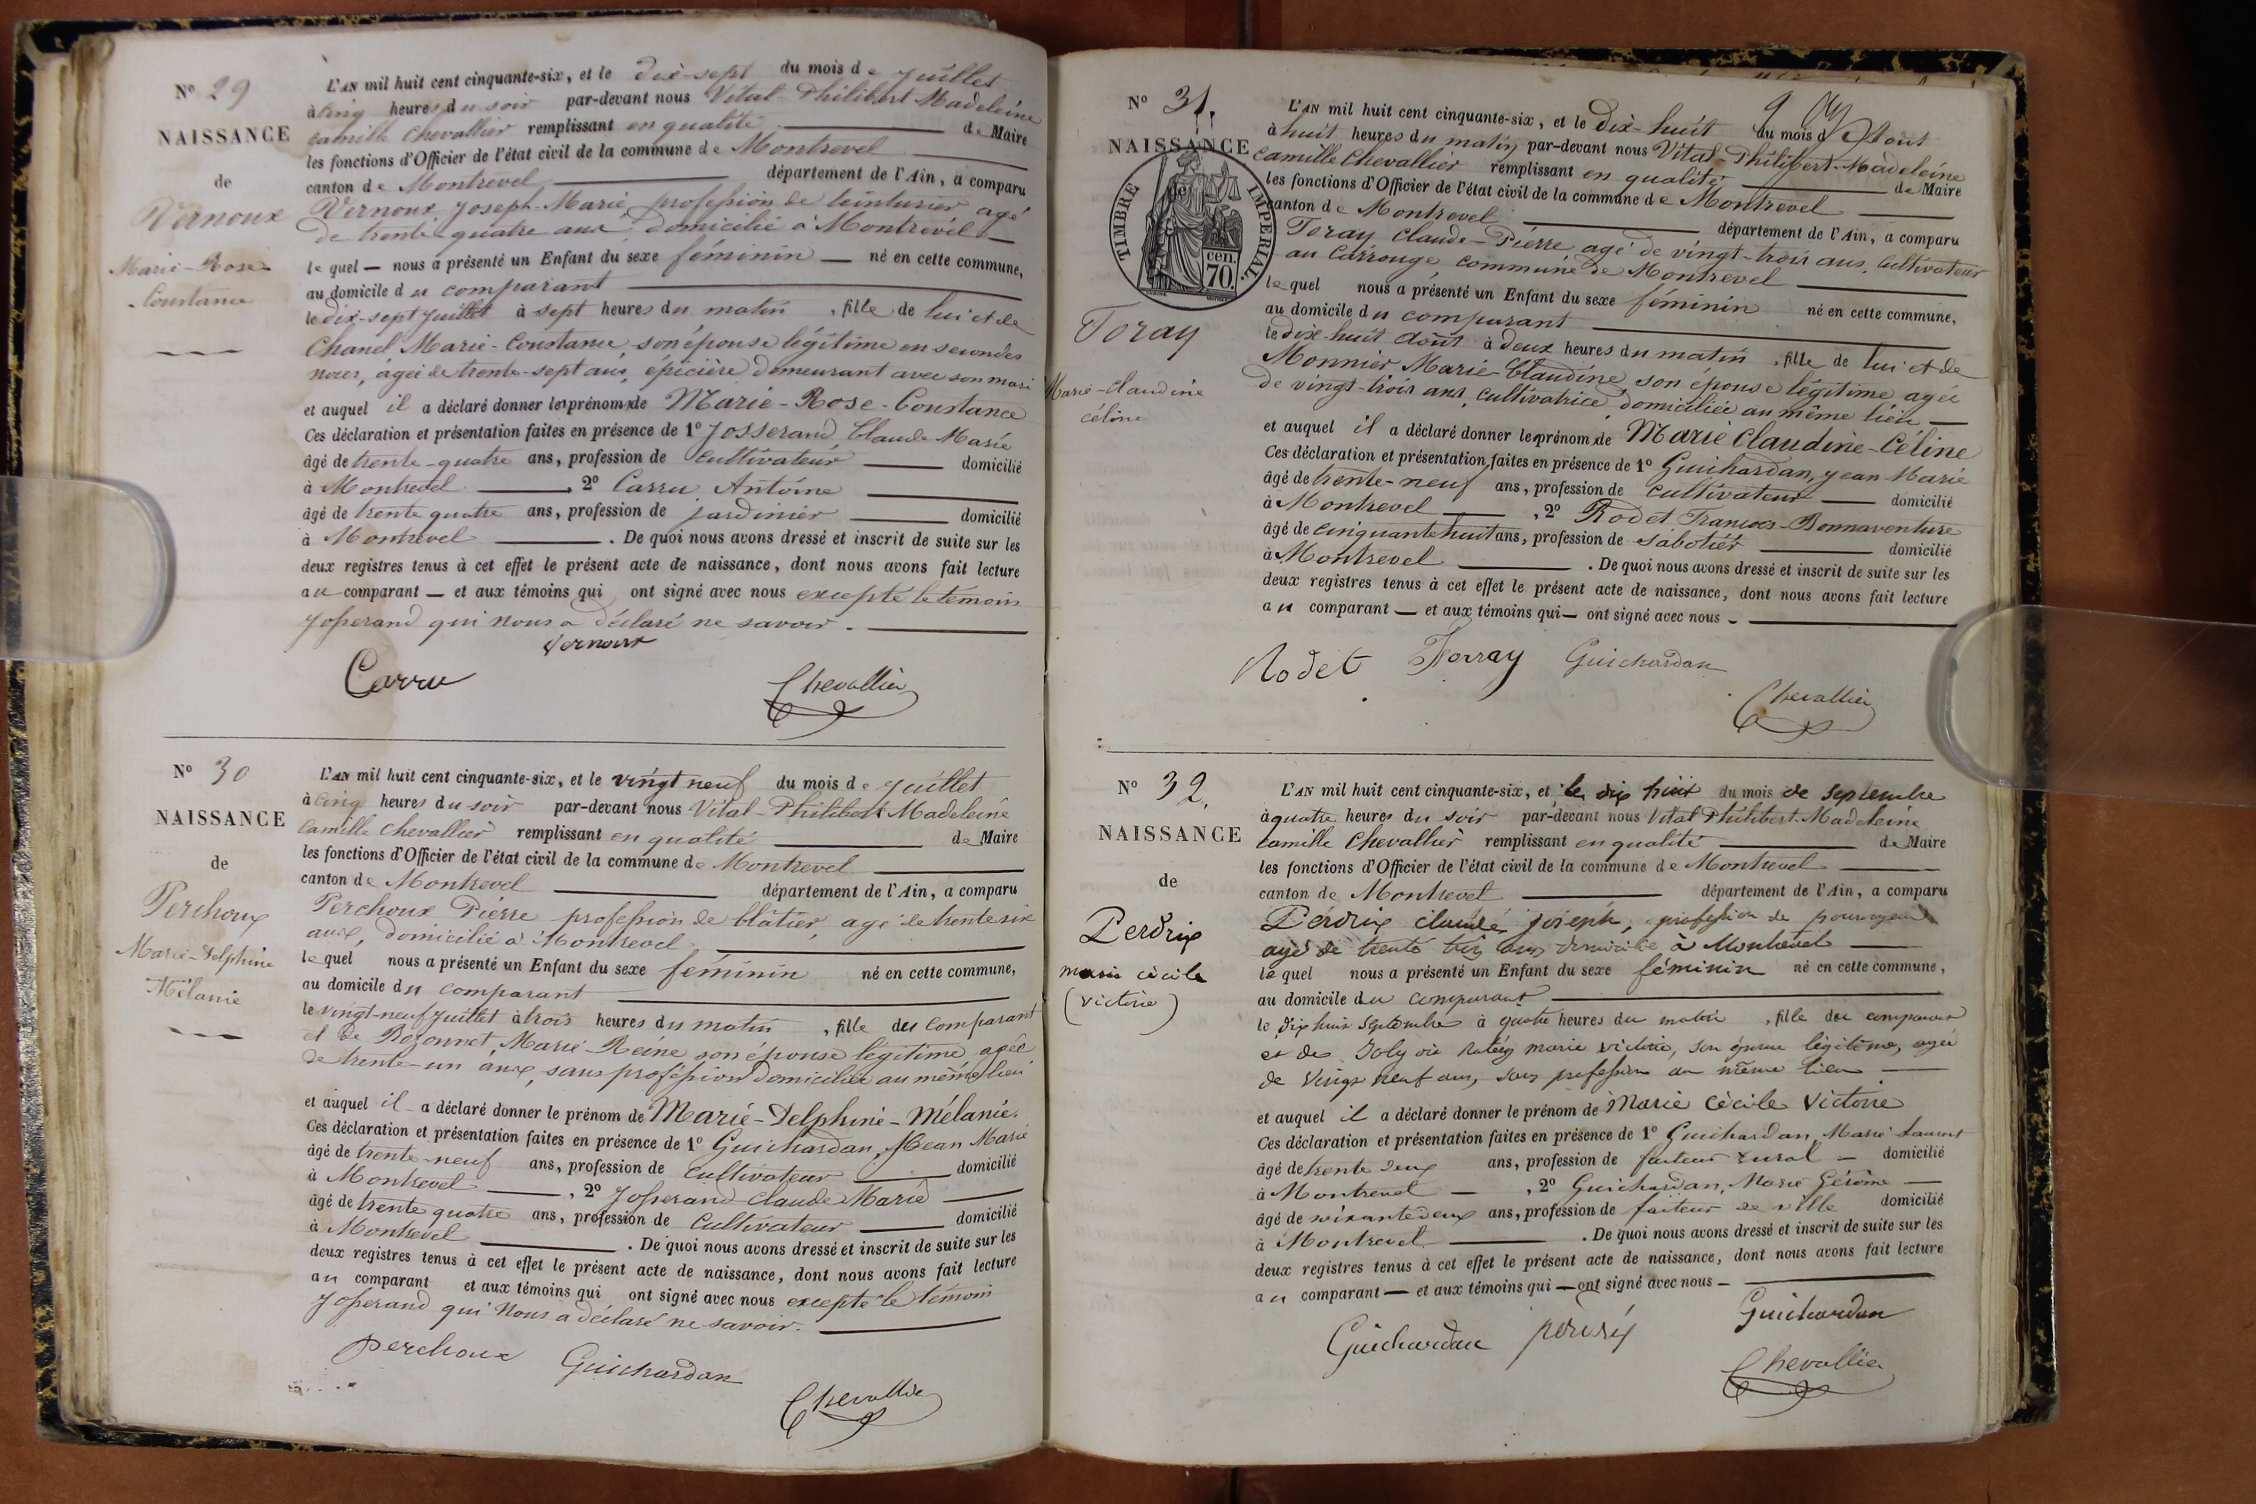 N° 29
NAISSANCE
de
Vernoux
Marie-Rose
Constance
L'AN mil huit cent cinquante-six, et le dix-sept du mois de juillet
à cinq heures du soir par-devant nous Vital-Philibert Madeleine
Camille Chevallier remplissant en qualité de Maire
les fonctions d'Officier de l'état civil de la commune de Montrevel
canton de Montrevel département de l'Ain, a comparu
Vernoux Joseph-Marie, profession de teinturier, agé
de trente-quatre ans, domicilié à Montrevel
lequel — nous a présenté un Enfant du sexe féminin — né en cette commune,
au domicile du comparant
le dix-sept juillet à sept heures du matin, fille de lui et de
Chanel, Marie-Constance, son épouse légitime en secondes
noces, agée de trente-sept ans, épicière demeurant avec son mari
et auquel il a déclaré donner les prénoms de Marie-Rose-Constance
Ces déclaration et présentation faites en présence de 1° Josserand, Claude Marie
âgé de trente-quatre ans, profession de cultivateur domicilié
à Montrevel, 2° Carru Antoine
âgé de trente quatre ans, profession de jardinier domicilié
à Montrevel. De quoi nous avons dressé et inscrit de suite sur les
deux registres tenus à cet effet le présent acte de naissance, dont nous avons fait lecture
au comparant — et aux témoins qui ont signé avec nous excepté le témoin
Josserand qui nous a déclaré ne savoir.
Vernoux
Carru
Chevallier
N° 30
NAISSANCE
de
Perchoux
Marie-Delphine
Mélanie
L'AN mil huit cent cinquante-six, et le vingt neuf du mois de juillet
à cinq heures du soir par-devant nous Vital-Philibert Madeleine
Camille Chevallier remplissant en qualité de Maire
les fonctions d'Officier de l'état civil de la commune de Montrevel
canton de Montrevel département de l'Ain, a comparu
Perchoux Pierre profession de blâtier, agé de trente six
ans, domicilié à Montrevel
lequel nous a présenté un Enfant du sexe féminin né en cette commune,
au domicile du comparant
le vingt-neuf juillet à trois heures du matin, fille du comparant
et de Bozonnet, Marie-Reine son épouse légitime, agée
de trente-un ans, sans profession domiciliée au même lieu
et auquel il a déclaré donner le prénom de Marie-Delphine-Mélanie.
Ces déclaration et présentation faites en présence de 1° Guichardan, Jean Marie
âgé de trente-neuf ans, profession de cultivateur domicilié
à Montrevel, 2° Josserand Claude Marie
âgé de trente quatre ans, profession de cultivateur domicilié
à Montrevel. De quoi nous avons dressé et inscrit de suite sur les
deux registres tenus à cet effet le présent acte de naissance, dont nous avons fait lecture
au comparant et aux témoins qui ont signé avec nous excepté le témoin
Josserand qui nous a déclaré ne savoir.
perchoux
Guichardan
Chevallier
N° 31.
NAISSANCE
de
TIMBRE IMPERIAL.
cen.
70.
Toray
Marie-Claudine
céline
L'AN mil huit cent cinquante-six, et le dix-huit du mois d'Août
à huit heures du matin par-devant nous Vital-Philibert-Madeleine
Camille Chevallier remplissant en qualité de Maire
les fonctions d'Officier de l'état civil de la commune de Montrevel
canton de Montrevel département de l'Ain, a comparu
Toray Claude-Pierre agé de vingt-trois ans, cultivateur
au Carrouge commune de Montrevel
lequel nous a présenté un Enfant du sexe féminin né en cette commune,
au domicile du comparant
le dix-huit août à deux heures du matin, fille de lui et de
Monnier Marie-Claudine, son épouse légitime, agée
de vingt-trois ans, cultivatrice, domiciliée au même lieu —
et auquel il a déclaré donner les prénoms de Marie Claudine-Céline
Ces déclaration et présentation faites en présence de 1° Guichardan, jean Marie
âgé de trente-neuf ans, profession de cultivateur domicilié
à Montrevel, 2° Rodet François-Bonnaventure
âgé de cinquante huit ans, profession de sabotier domicilié
à Montrevel. De quoi nous avons dressé et inscrit de suite sur les
deux registres tenus à cet effet le présent acte de naissance, dont nous avons fait lecture
au comparant — et aux témoins qui — ont signé avec nous —
Rodet Torray Guichardan
Chevallier
N° 32.
NAISSANCE
de
Perdrix
marie cècile
(victoire)
L'AN mil huit cent cinquante-six, et le dix huit du mois de septembre
à quatre heures du soir par-devant nous Vital Philibert Madeleine
Camille Chevallier remplissant en qualité de Maire
les fonctions d'Officier de l'état civil de la commune de Montrevel
canton de Montrevel département de l'Ain, a comparu
Perdrix claude joseph, profession de
agé de trente trois ans domicilié à Montrevel
lequel nous a présenté un Enfant du sexe féminin né en cette commune,
au domicile du comparant
le dix huit septembre à quatre heures du matin, fille du comparant
et de Joly marie victoire, son épouse légitime, agée
de vingt neuf ans, sans profession au même lieu
et auquel il a déclaré donner le prénom de Marie Cècile Victoire
Ces déclaration et présentation faites en présence de 1° Guichardan, Marie Laurent
âgé de trente deux ans, profession de facteur rural — domicilié
à Montrevel —, 2° Guichardan, Marie Gérôme —
âgé de soixante deux ans, profession de facteur de ville domicilié
à Montrevel. De quoi nous avons dressé et inscrit de suite sur les
deux registres tenus à cet effet le présent acte de naissance, dont nous avons fait lecture
au comparant — et aux témoins qui — ont signé avec nous —
Guichardan perdrix Guichardan
Chevallier